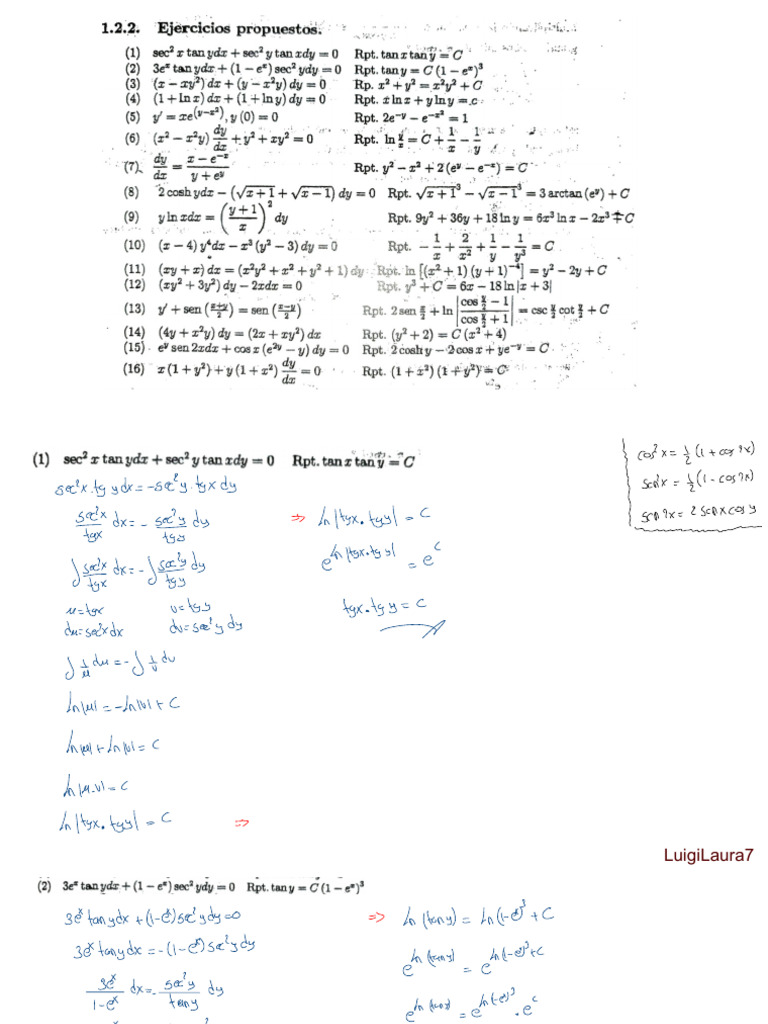 1.2.2. Ejercicios propuestos.
(1) sec² x tan ydx + sec² y tan xdy = 0 Rpt. tan x tan y = C
(2) 3eˣ tan ydx + (1 − eˣ) sec² ydy = 0 Rpt. tan y = C (1 − eˣ)³
(3) (x − xy²) dx + (y − x²y) dy = 0 Rp. x² + y² = x²y² + C
(4) (1 + ln x) dx + (1 + ln y) dy = 0 Rpt. x ln x + y ln y = c
(5) y′ = xe^(y−x²), y (0) = 0 Rpt. 2e^−y − e^−x² = 1
(6) (x² − x²y) dy/dx + y² + xy² = 0 Rpt. ln y/x = C + 1/x − 1/y
(7) dy/dx = (x − e^−x)/(y + e^y) Rpt. y² − x² + 2 (e^y − e^−x) = C
(8) 2 cosh ydx − (√x + 1 + √x − 1) dy = 0 Rpt. √x + 1³ − √x − 1³ = 3 arctan (e^y) + C
(9) y ln xdx = ((y + 1)/x)² dy Rpt. 9y² + 36y + 18 ln y = 6x³ ln x − 2x³ + C
(10) (x − 4) y⁴dx − x³ (y² − 3) dy = 0 Rpt. − 1/x + 2/x² + 1/y − 1/y³ = C
(11) (xy + x) dx = (x²y² + x² + y² + 1) dy Rpt. ln [(x² + 1) (y + 1)^−4] = y² − 2y + C
(12) (xy² + 3y²) dy − 2xdx = 0 Rpt. y³ + C = 6x − 18 ln |x + 3|
(13) y′ + sen ((x+y)/2) = sen ((x−y)/2) Rpt. 2 sen x/2 + ln |(cos y/2 − 1)/(cos y/2 + 1)| = csc y/2 cot y/2 + C
(14) (4y + x²y) dy = (2x + xy²) dx Rpt. (y² + 2) = C (x² + 4)
(15) e^y sen 2xdx + cos x (e^2y − y) dy = 0 Rpt. 2 cosh y − 2 cos x + ye^−y = C
(16) x (1 + y²) + y (1 + x²) dy/dx = 0 Rpt. (1 + x²) (1 + y²) = C
(1) sec² x tan ydx + sec² y tan xdy = 0 Rpt. tan x tan y = C
cos²x = 1/2 (1 + cos2x)
sen²x = 1/2 (1 − cos2x)
sen2x = 2 senx cosy
sec²x . tg y dx = −sec²y . tgx dy
sec²x/tgx dx = − sec²y/tgy dy
∫ sec²x/tgx dx = −∫ sec²y/tgy dy
u = tgx v = tgy
du = sec²x dx dv = sec²y dy
∫ 1/u du = −∫ 1/v dv
ln|u| = −ln|v| + C
ln|u| + ln|v| = C
ln|u.v| = C
ln|tgx . tgy| = C ⇒
⇒ ln|tgx . tgy| = C
e^ln|tgx.tgy| = e^C
tgx . tgy = C
LuigiLaura7
(2) 3eˣ tan ydx + (1 − eˣ) sec² ydy = 0 Rpt. tan y = C (1 − eˣ)³
3eˣ tan y dx + (1−eˣ) sec²y dy = 0
3eˣ tan y dx = −(1−eˣ) sec²y dy
3eˣ/(1−eˣ) dx = − sec²y/tany dy
⇒ ln (tan y) = ln (1−eˣ)³ + C
e^ln(tan y) = e^ln(1−eˣ)³+C
e^ln(tan y) = e^ln(1−eˣ)³ . e^C